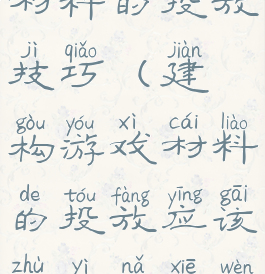 材料的投放
jì qiǎo jiàn
技巧（建
gòu yóu xì cái liào
构游戏材料
de tóu fàng yīng gāi
的投放应该
zhù yì nǎ xiē wèn